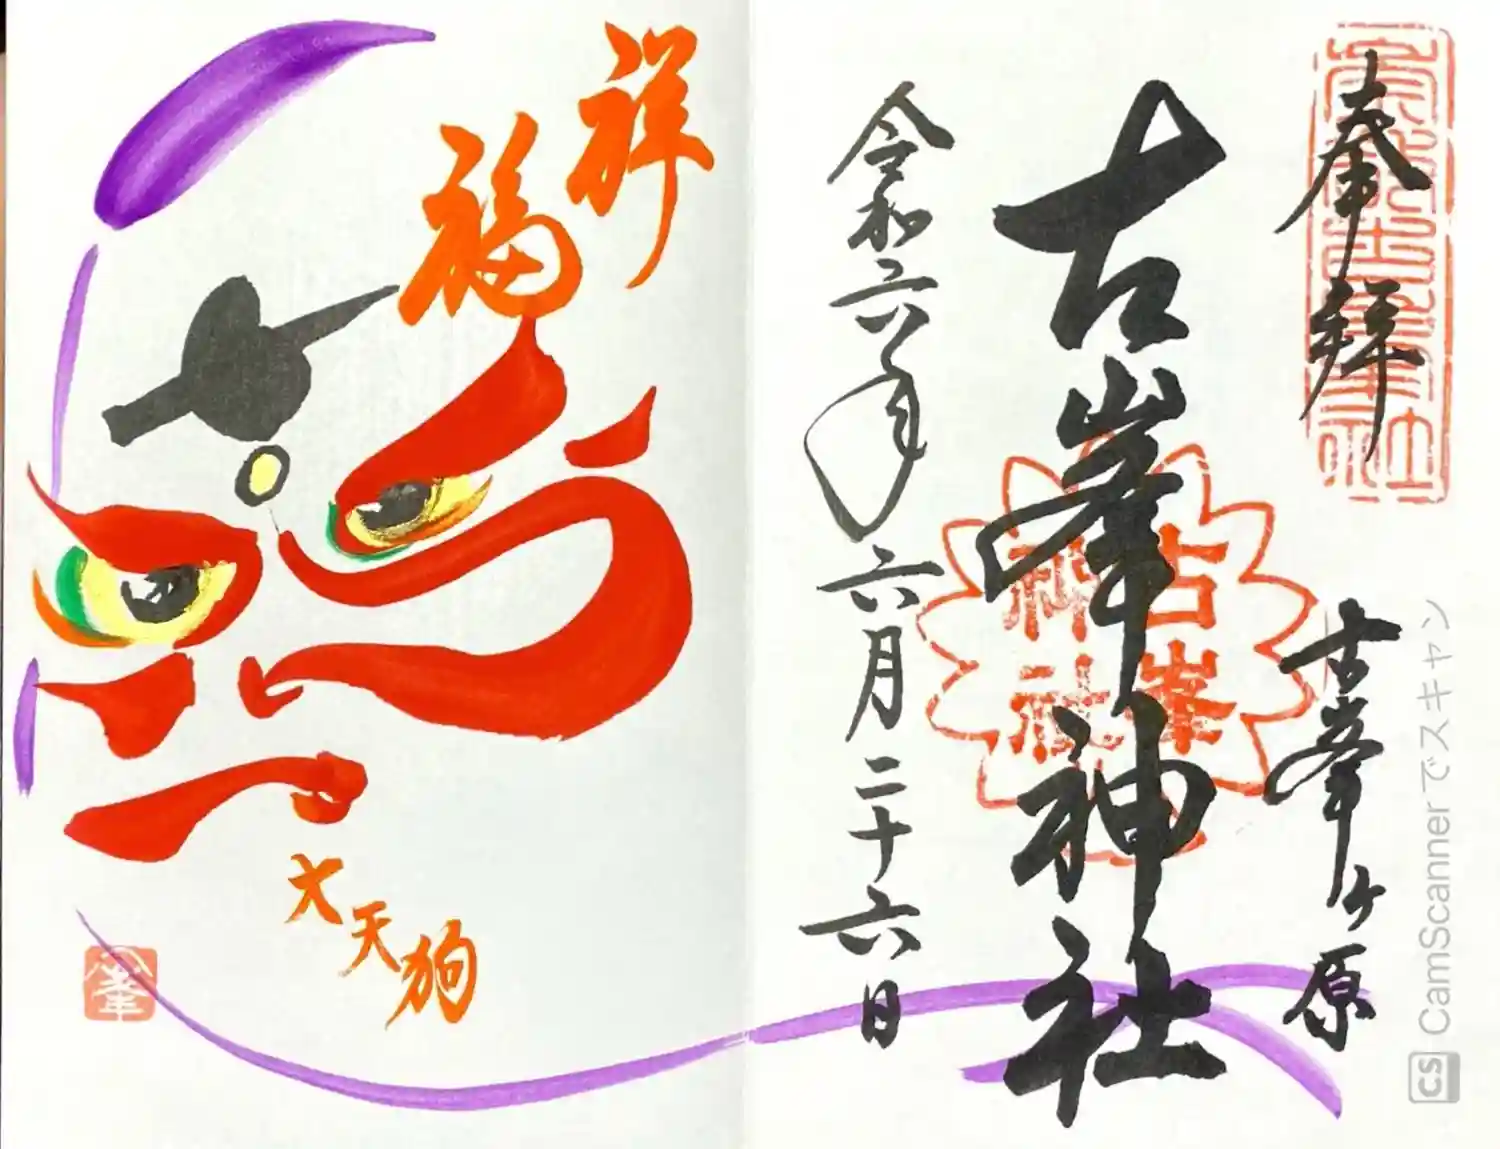 奉拝
古峯ヶ原
古峯神社
古峯
神社
令和六年六月二十六日
祥福
大天狗
峯
CS CamScannerでスキャン